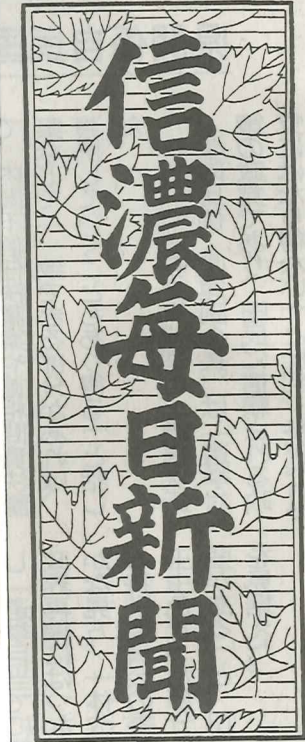 信濃毎日新聞